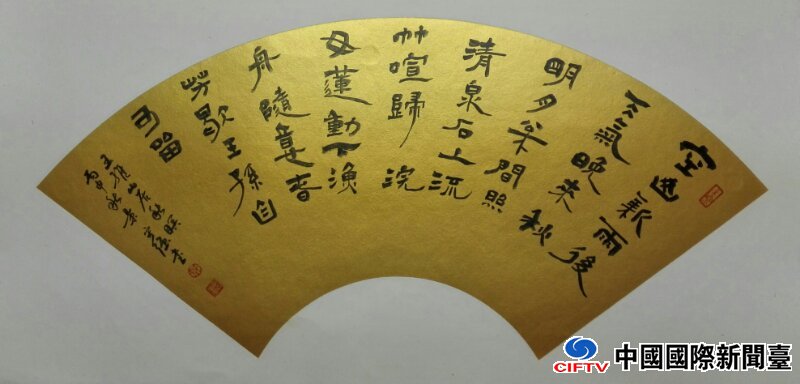 空山新雨後
天氣晚来秋
明月松間照
清泉石上流
竹喧歸浣
女蓮動下漁
舟隨意春
芳歇王孫自
可留
王維山居秋暝
丙申秋
CIFTV
中國國際新聞臺